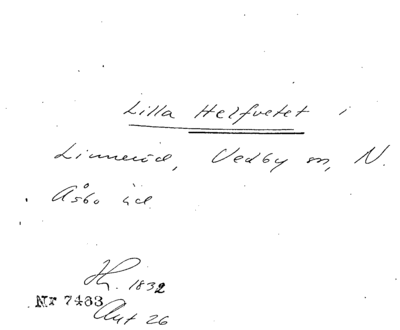 Lilla Helfvetet i
Linneröd, Vedby sn, N.
Åsbo hd.
1832
Nr 7433
Akt 26